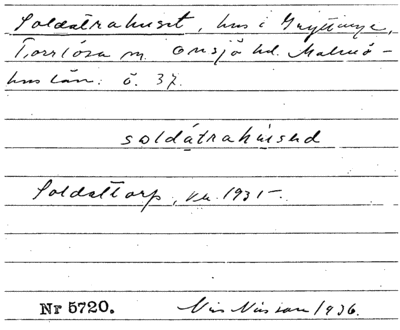 Soldatrahuset, hus i Gryttinge,
Torrlösa sn. Onsjö hd. Malmö-
hus län. ö. 37.
soldátrahúsəd
Soldattorp, rev. 1931-.
Nr 5720. Nils Nilsson 1936.